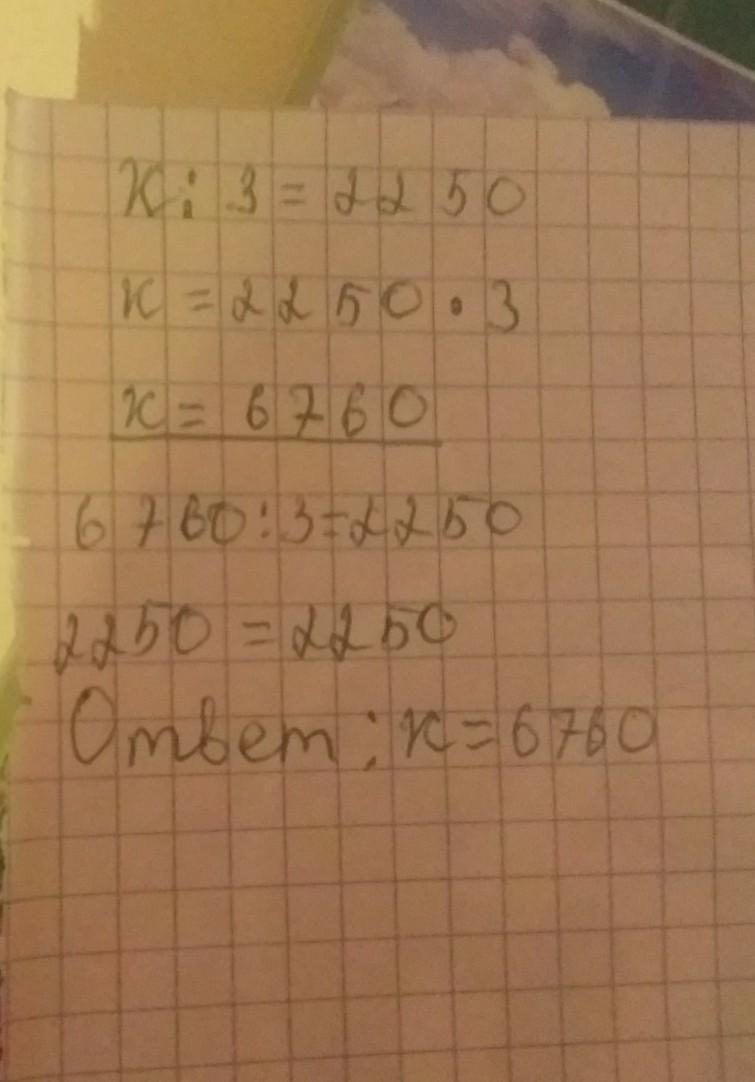 к : 3 = 2250
к = 2250 · 3
к = 6760
6760 : 3 = 2250
2250 = 2250
Ответ : к = 6760